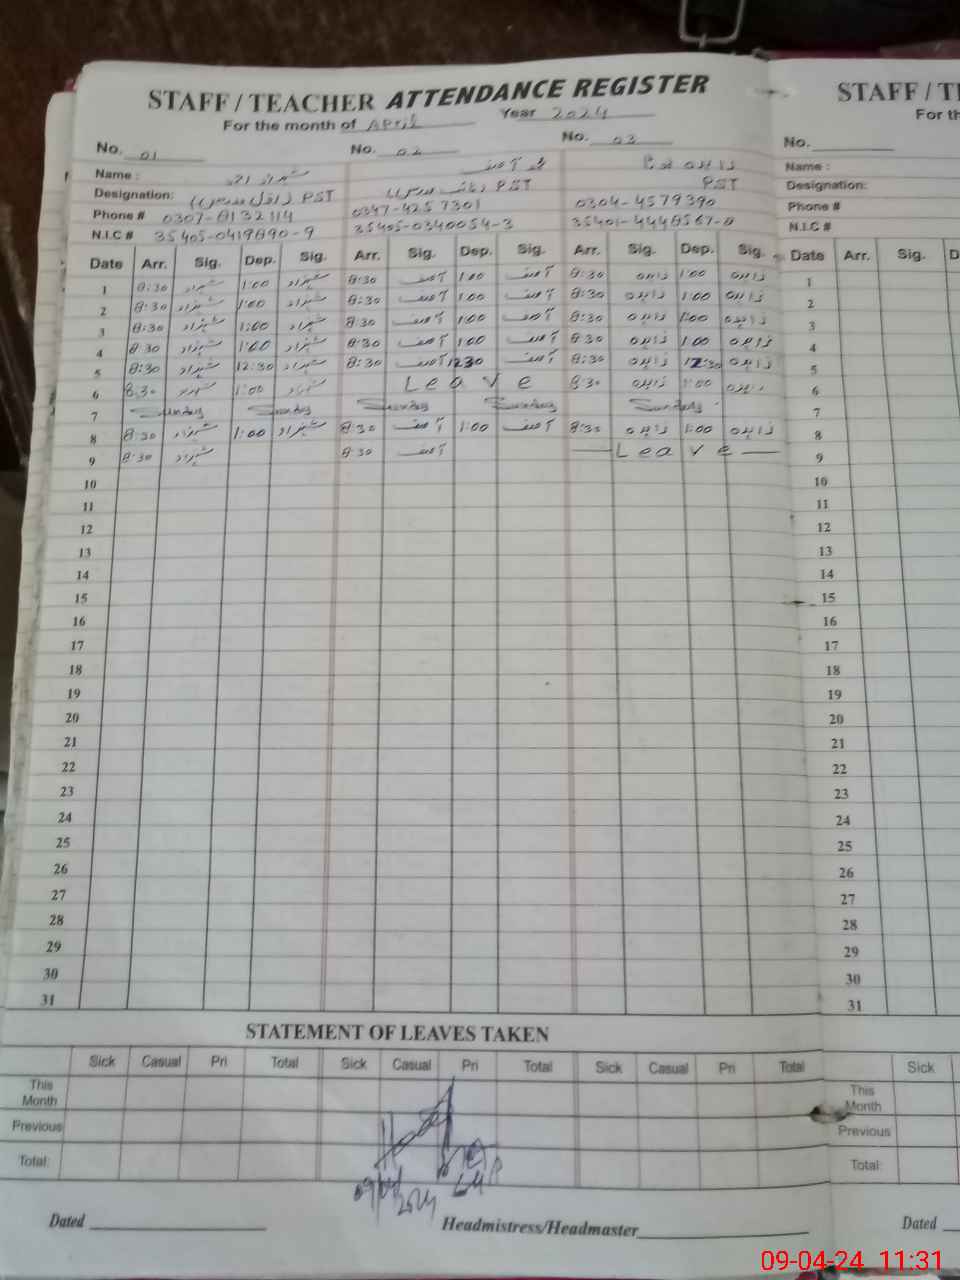 STAFF / TEACHER ATTENDANCE REGISTER
For the month of April Year 2024
No. 01 No. 02 No. 03
Name : شہزاد
Designation: PST PST PST
Phone # 0307-8132114 0347-4257301 0304-4579390
N.I.C # 35405-0419890-9 35405-0340054-3 35401-4448567-8
Date Arr. Sig. Dep. Sig. Arr. Sig. Dep. Sig. Arr. Sig. Dep. Sig.
1 8:30 شہزاد 1:00 شہزاد 8:30 آصف 1:00 آصف 8:30 زاہدہ 1:00 زاہدہ
2 8:30 شہزاد 1:00 شہزاد 8:30 آصف 1:00 آصف 8:30 زاہدہ 1:00 زاہدہ
3 8:30 شہزاد 1:00 شہزاد 8:30 آصف 1:00 آصف 8:30 زاہدہ 1:00 زاہدہ
4 8:30 شہزاد 1:00 شہزاد 8:30 آصف 1:00 آصف 8:30 زاہدہ 1:00 زاہدہ
5 8:30 شہزاد 12:30 شہزاد 8:30 آصف 1230 آصف 8:30 زاہدہ 12:30 زاہدہ
6 8:30 شہزاد 1:00 شہزاد Leave 8:30 زاہدہ 1:00 زاہدہ
7 Sunday Sunday Sunday Sunday Sunday
8 8:30 شہزاد 1:00 شہزاد 8:30 آصف 1:00 آصف 8:30 زاہدہ 1:00 زاہدہ
9 8:30 شہزاد 8:30 آصف Leave
10
11
12
13
14
15
16
17
18
19
20
21
22
23
24
25
26
27
28
29
30
31
STATEMENT OF LEAVES TAKEN
Sick Casual Pri Total Sick Casual Pri Total Sick Casual Pri Total
This Month
Previous
Total:
09/04/2024
Dated Headmistress/Headmaster
STAFF / TE
For th
No.
Name :
Designation:
Phone #
N.I.C #
Date Arr. Sig. D
1
2
3
4
5
6
7
8
9
10
11
12
13
14
15
16
17
18
19
20
21
22
23
24
25
26
27
28
29
30
31
Sick
This Month
Previous
Total:
Dated
09-04-24 11:31